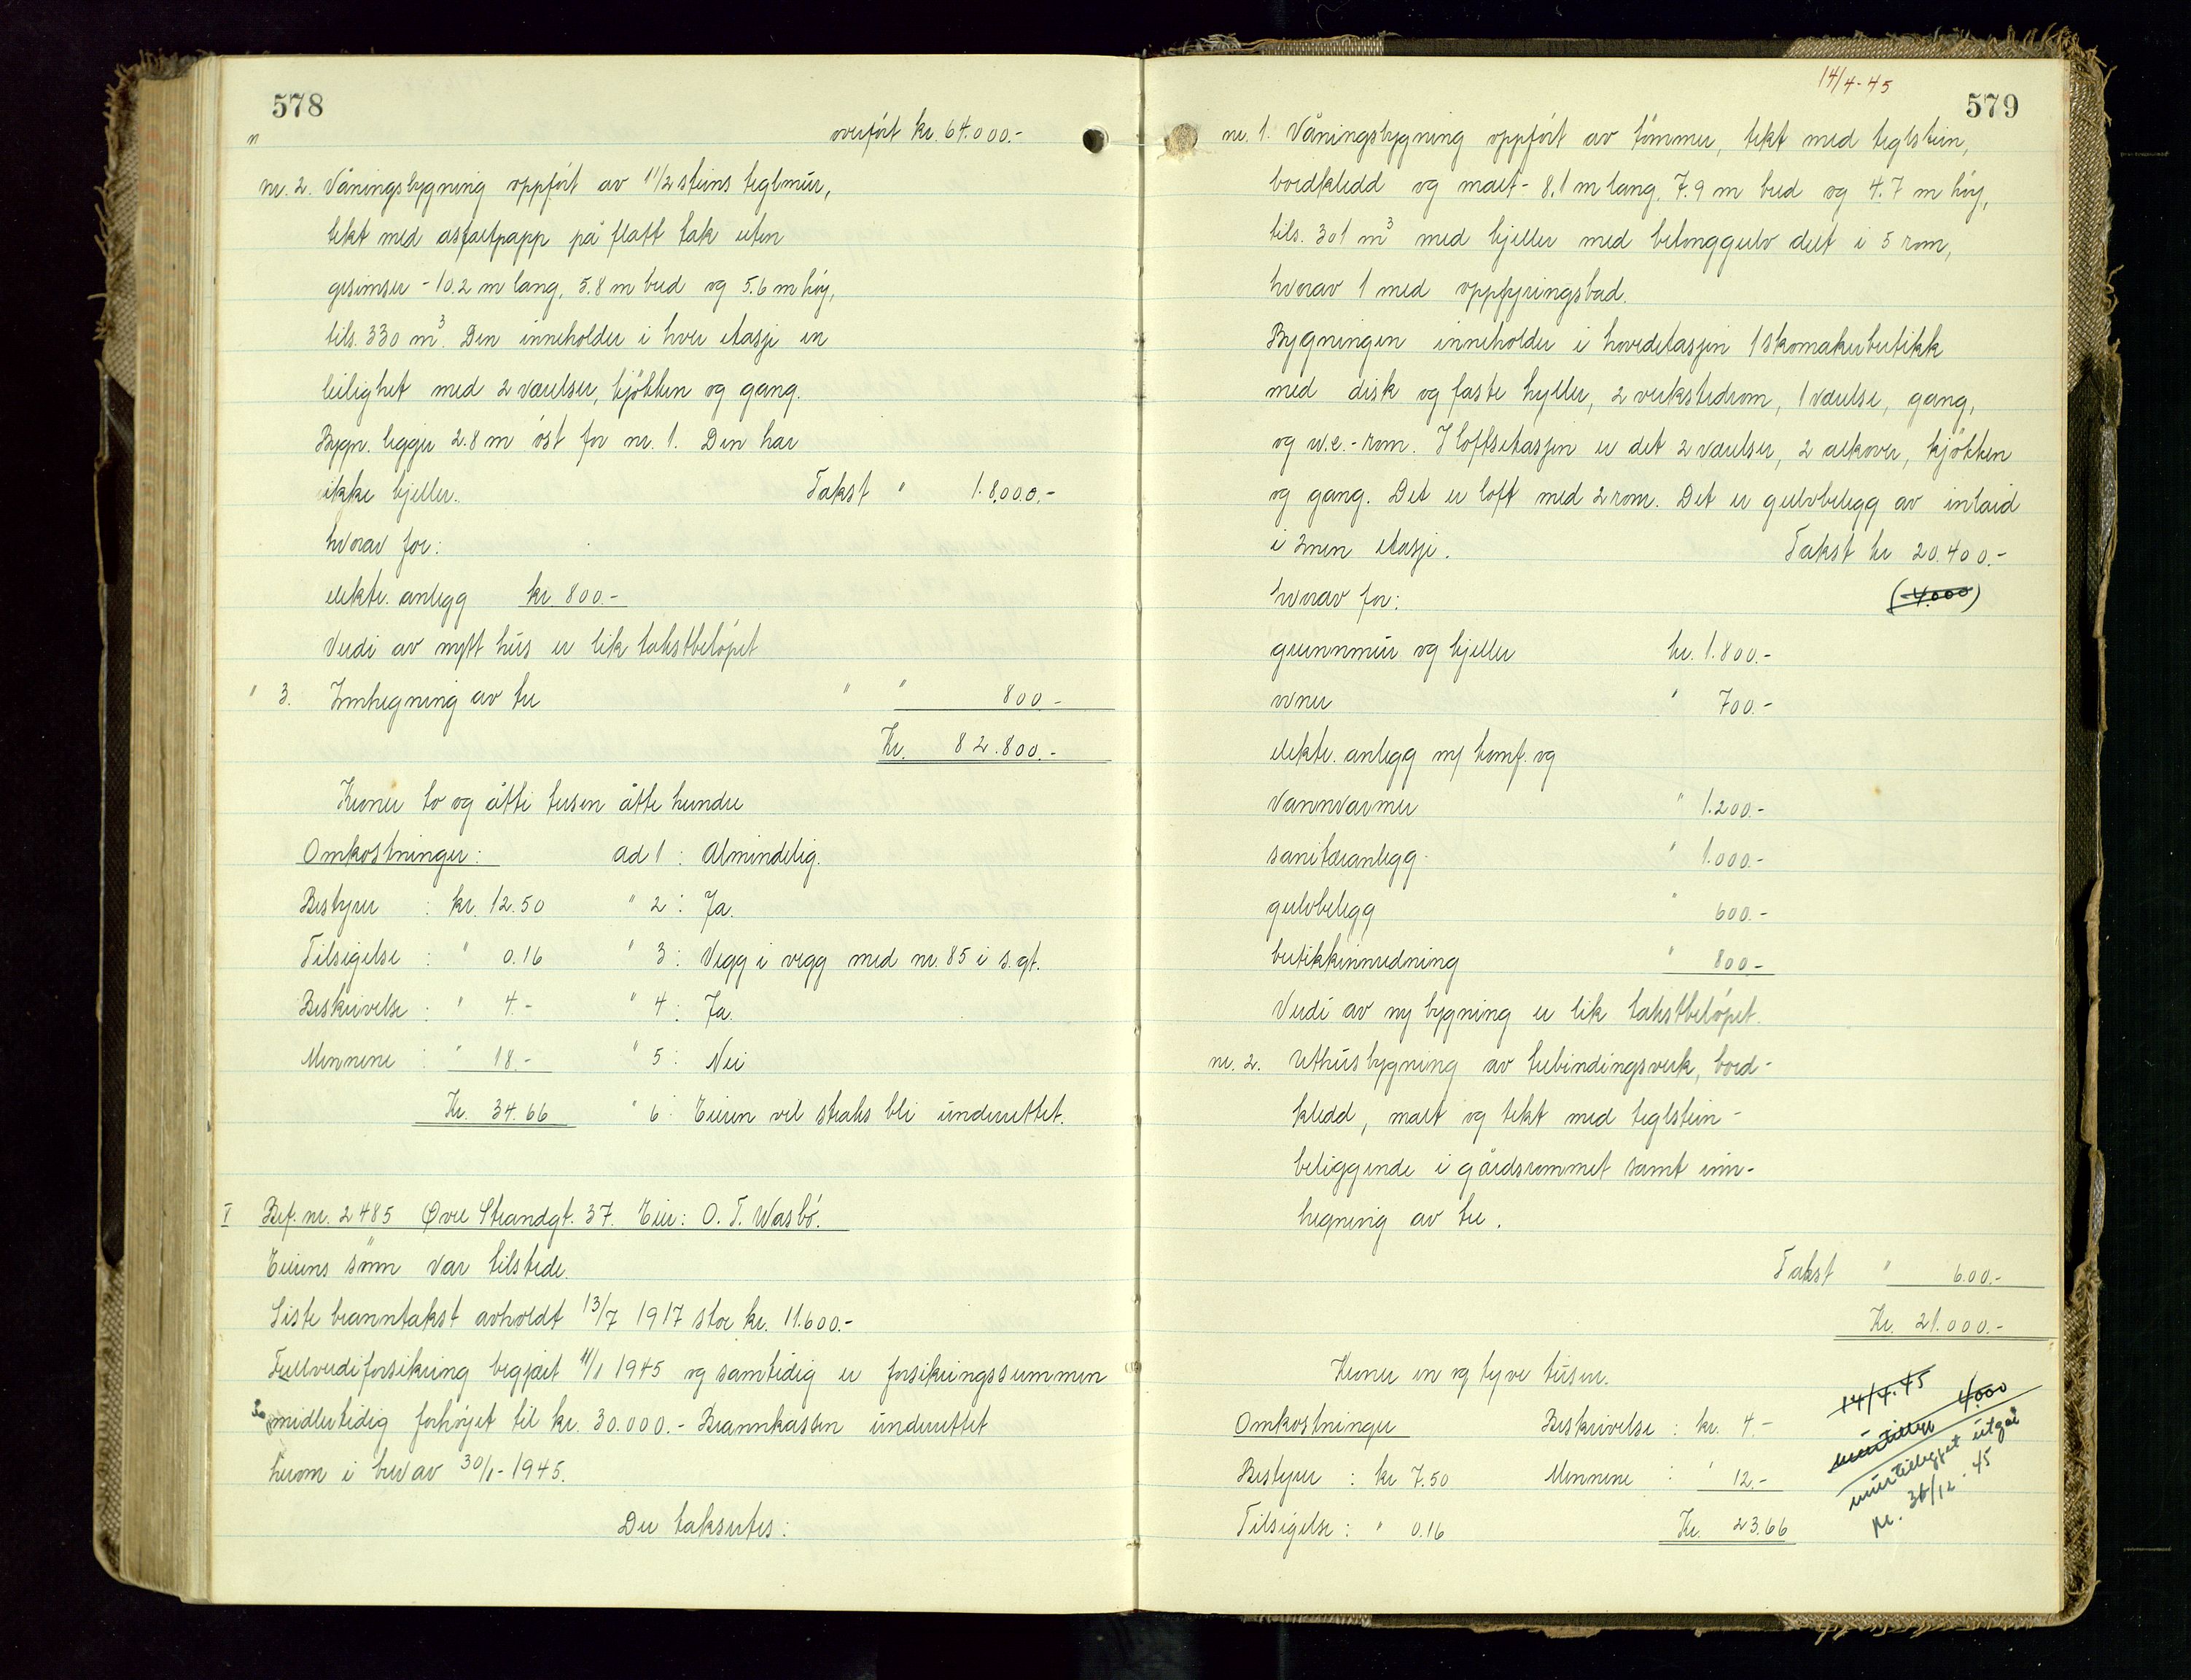 578
overført kr. 64.000.-
nr. 2. Våningsbygning oppført av 1 1/2 steins teglmur,
tekt med asfaltpapp på flatt tak uten
gesimser - 10.2 m lang, 5.8 m bred og 5.6 m høy,
tils. 330 m³. Den inneholder i hver etasje en
leilighet med 2 værelser, kjøkken og gang.
Bygn. ligger 2.8 m øst for nr. 1. Den har
ikke kjeller. Takst " 18.000.-
hvorav for:
elektr. anlegg kr 800.-
Verdi av nytt hus er lik takstbeløpet
" 3. Innhegning av tre " " 800.-
Kr. 82.800.-
Kroner to og åtti tusen åtte hundre
Omkostninger: ad 1: Almindelig.
Bestyrer : kr. 12.50 " 2: Ja.
Tilsigelse : " 0.16 " 3: Vegg i vegg med nr. 85 i s. gt.
Beskrivelse : " 4.- " 4: Ja.
Mennene : " 18.- " 5: Nei
Kr. 34.66 " 6: Eieren vil straks bli underrettet.
I Brf. nr. 2485 Øvre Strandgt. 37. Eier: O. T. Wasbø.
Eierens sønn var tilstede.
Siste branntakst avholdt 13/7 1917 stor kr. 11.600.-
Fullverdiforsikring begjært 11/1 1945 og samtidig er forsikringssummen
midlertidig forhøyet til kr. 30.000.- Brannkassen underrettet
herom i brev av 30/1-1945.
Der takseres:
14/4-45
579
nr. 1. Våningsbygning oppført av tømmer, tekt med teglstein,
bordkledd og malt - 8.1 m lang, 7.9 m bred og 4.7 m høy,
tils. 301 m³ med kjeller med betonggulv delt i 5 rom,
hvorav 1 med oppfyringsbad.
Bygningen inneholder i hovedetasjen 1 skomakerbutikk
med disk og faste hyller, 2 verkstedrom, 1 værelse, gang,
og w.c.-rom. I loftsetasjen er det 2 værelser, 2 alkover, kjøkken
og gang. Det er loft med 2 rom. Det er gulvbelegg av inlaid
i 2nen etasje. Takst kr 20.400.-
hvorav for: (4.000)
grunnmur og kjeller kr. 1.800.-
ovner " 700.-
elektr. anlegg m/ komf. og
vannvarmer " 1.200.-
sanitæranlegg " 1.000.-
gulvbelegg " 600.-
butikkinnredning " 800.-
Verdi av ny bygning er lik takstbeløpet.
nr. 2. Uthusbygning av trebindingsverk, bord-
kledd, malt og tekt med teglstein -
beliggende i gårdsrommet samt inn-
hegning av tre.
Takst " 600.-
Kr. 21.000.-
Kroner en og tyve tusen.
Omkostninger Beskrivelse : kr. 4.-
Bestyrer : kr 7.50 Mennene : " 12.-
Tilsigelse : " 0.16 Kr. 23.66
14/4.45
murtillegg 4.000
murtillegget utgår
pr. 31/12-45